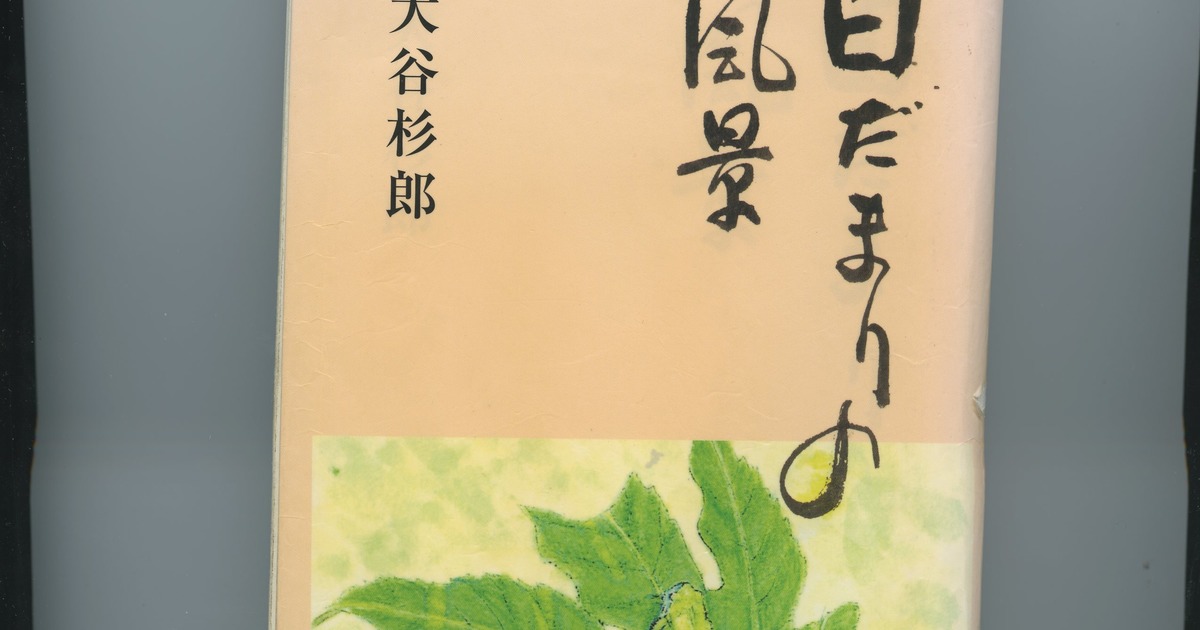 日だまりの
風景
大谷杉郎